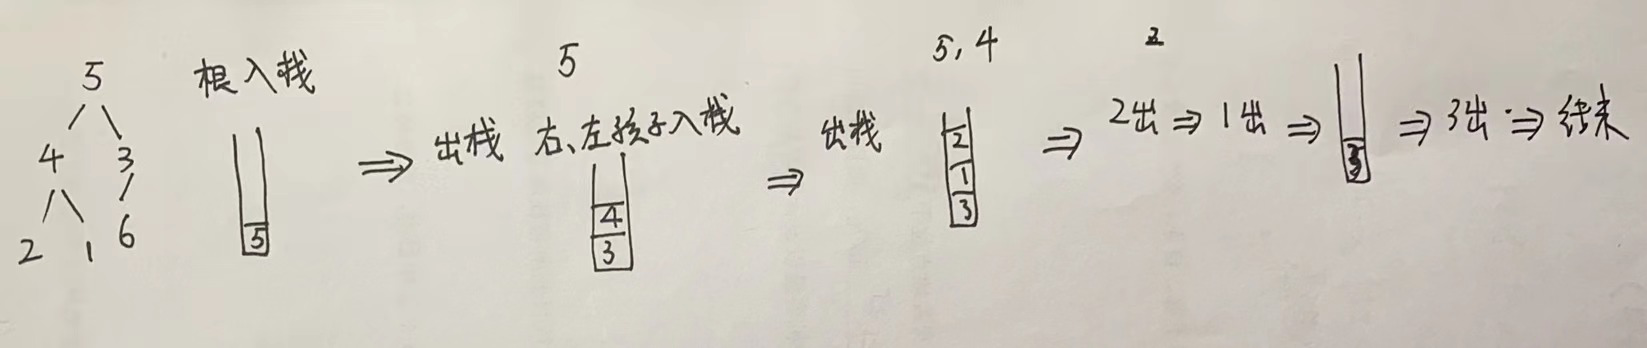 5
4 3
2 1 6
根入栈
5
⇒
5
出栈 右、左孩子入栈
4
3
⇒
5, 4
出栈
2
1
3
⇒
2
2出 ⇒ 1出 ⇒
3
⇒ 3出 ⇒ 结束